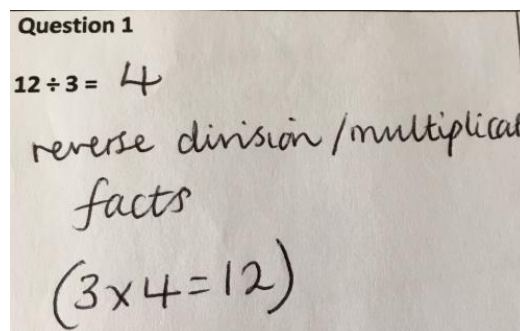 Question 1
12 ÷ 3 = 4
reverse division/multiplicat
facts
(3×4=12)